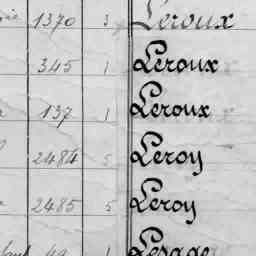 1370 3 Leroux
345 1 Leroux
137 1 Leroux
2484 5 Leroy
2485 5 Leroy
49 1 Lesage